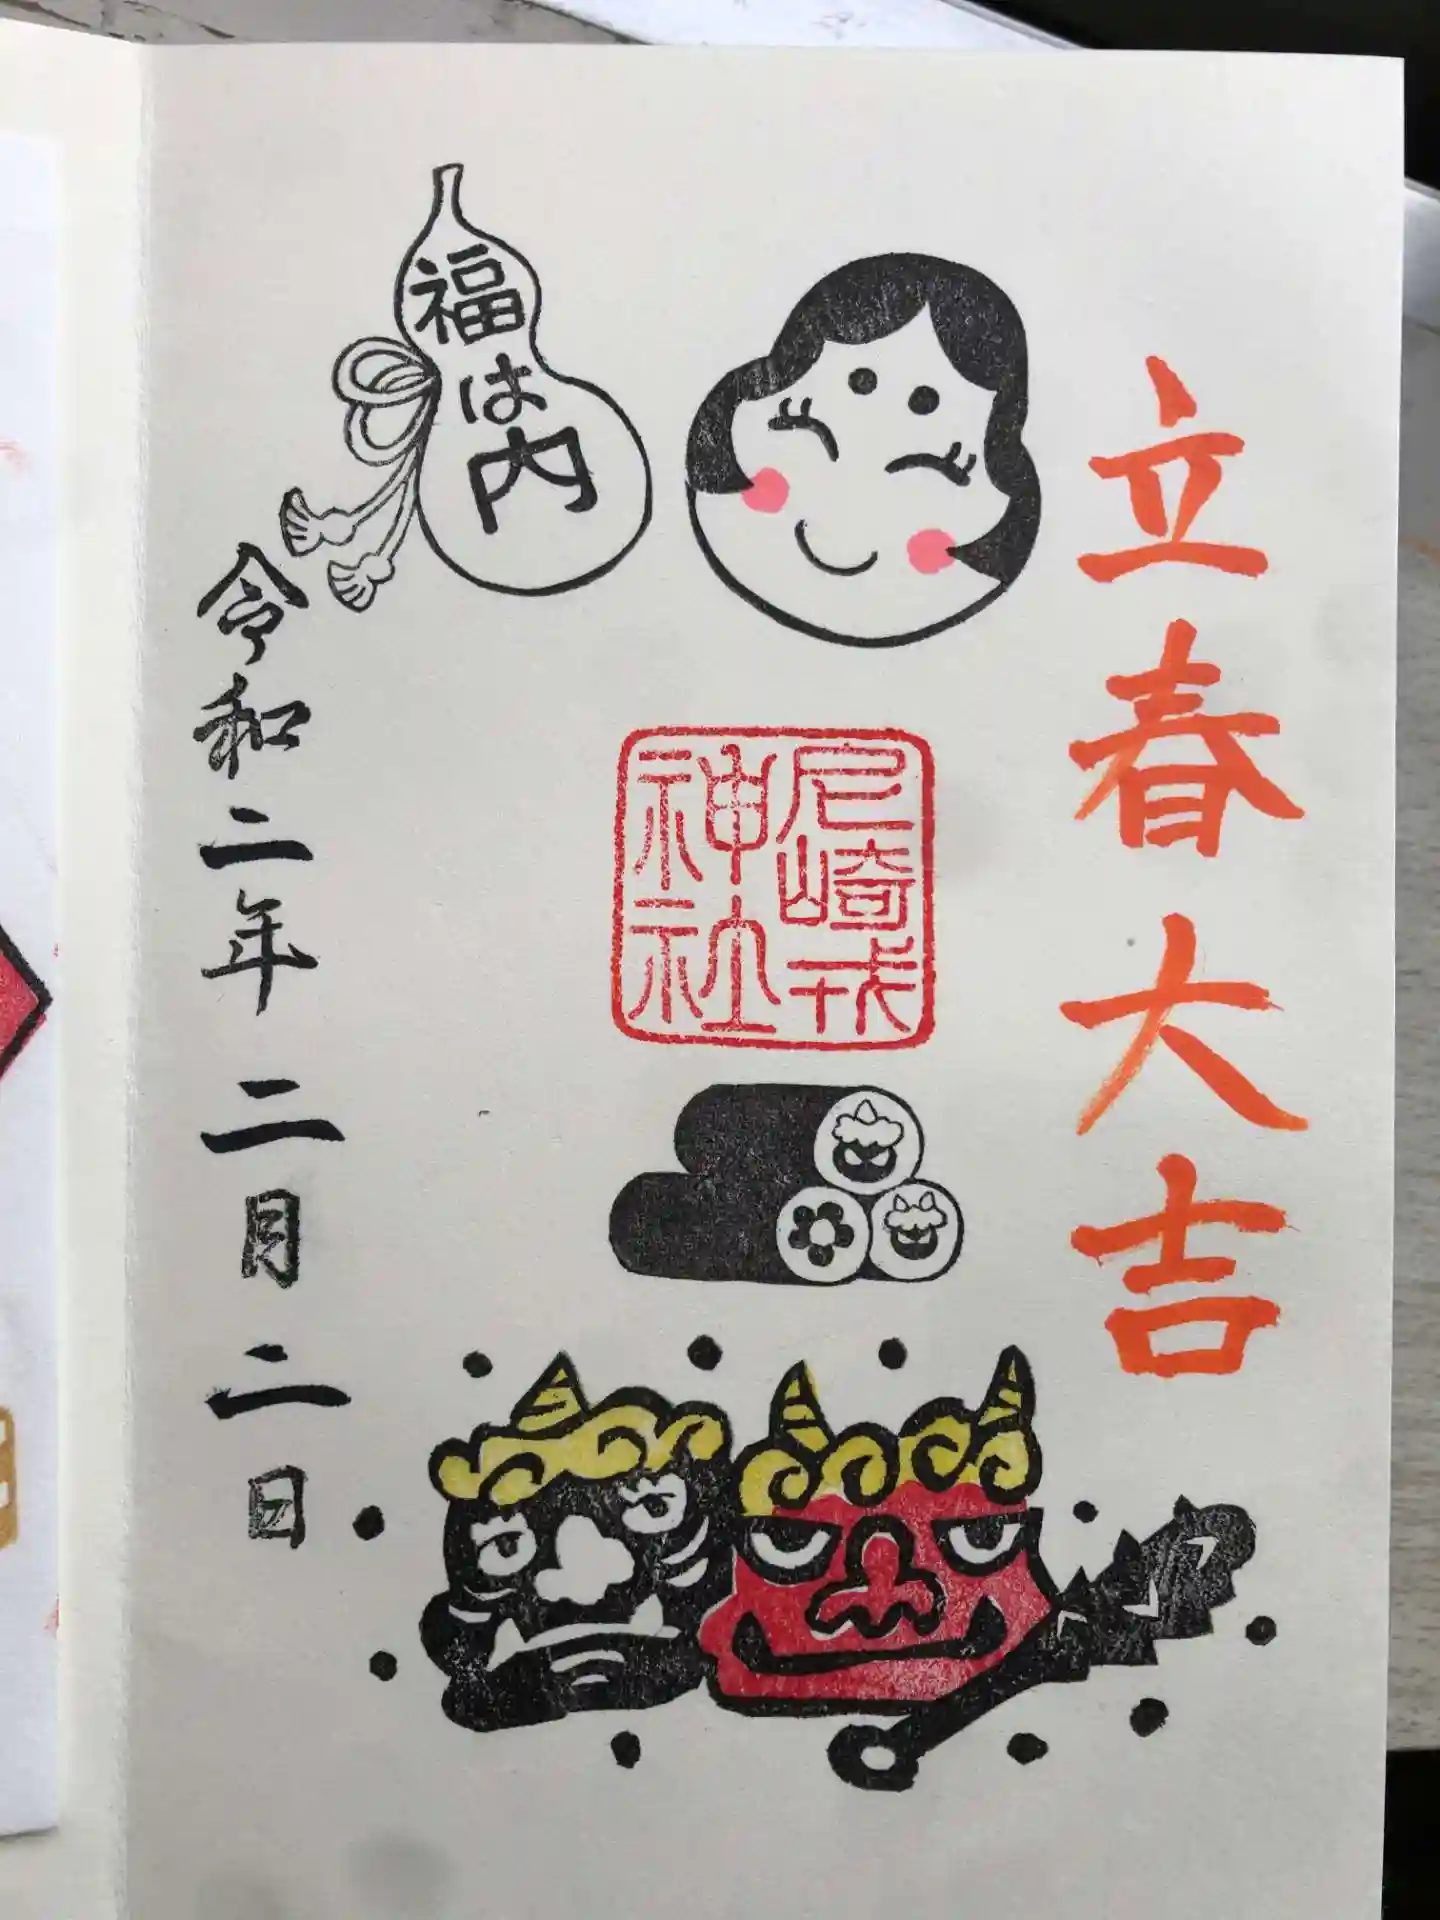 立春大吉
福は内
尼崎戎
神社
令和二年二月二日